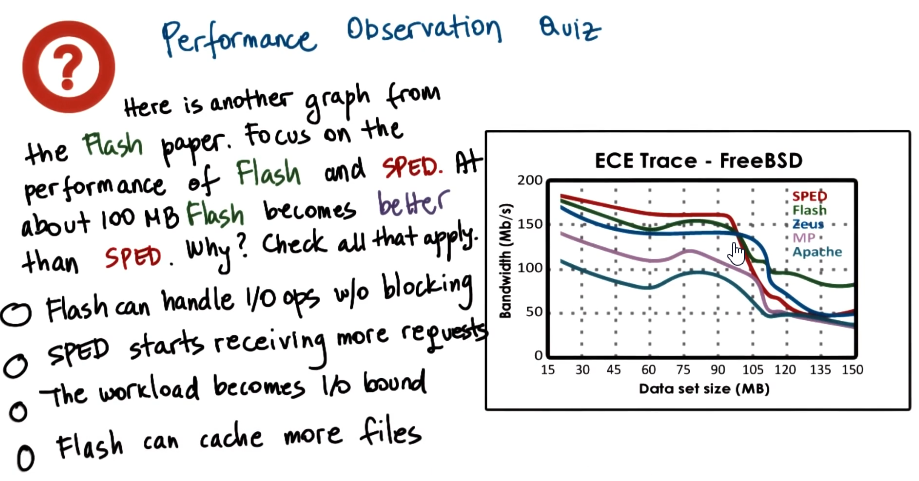 ?
Performance Observation Quiz
Here is another graph from
the Flash paper. Focus on the
performance of Flash and SPED. At
about 100 MB Flash becomes better
than SPED. Why? Check all that apply.
Flash can handle I/O ops w/o blocking
SPED starts receiving more requests
The workload becomes I/O bound
Flash can cache more files
ECE Trace - FreeBSD
Bandwidth (Mb/s)
200
150
100
50
0
SPED
Flash
Zeus
MP
Apache
15 30 45 60 75 90 105 120 135 150
Data set size (MB)